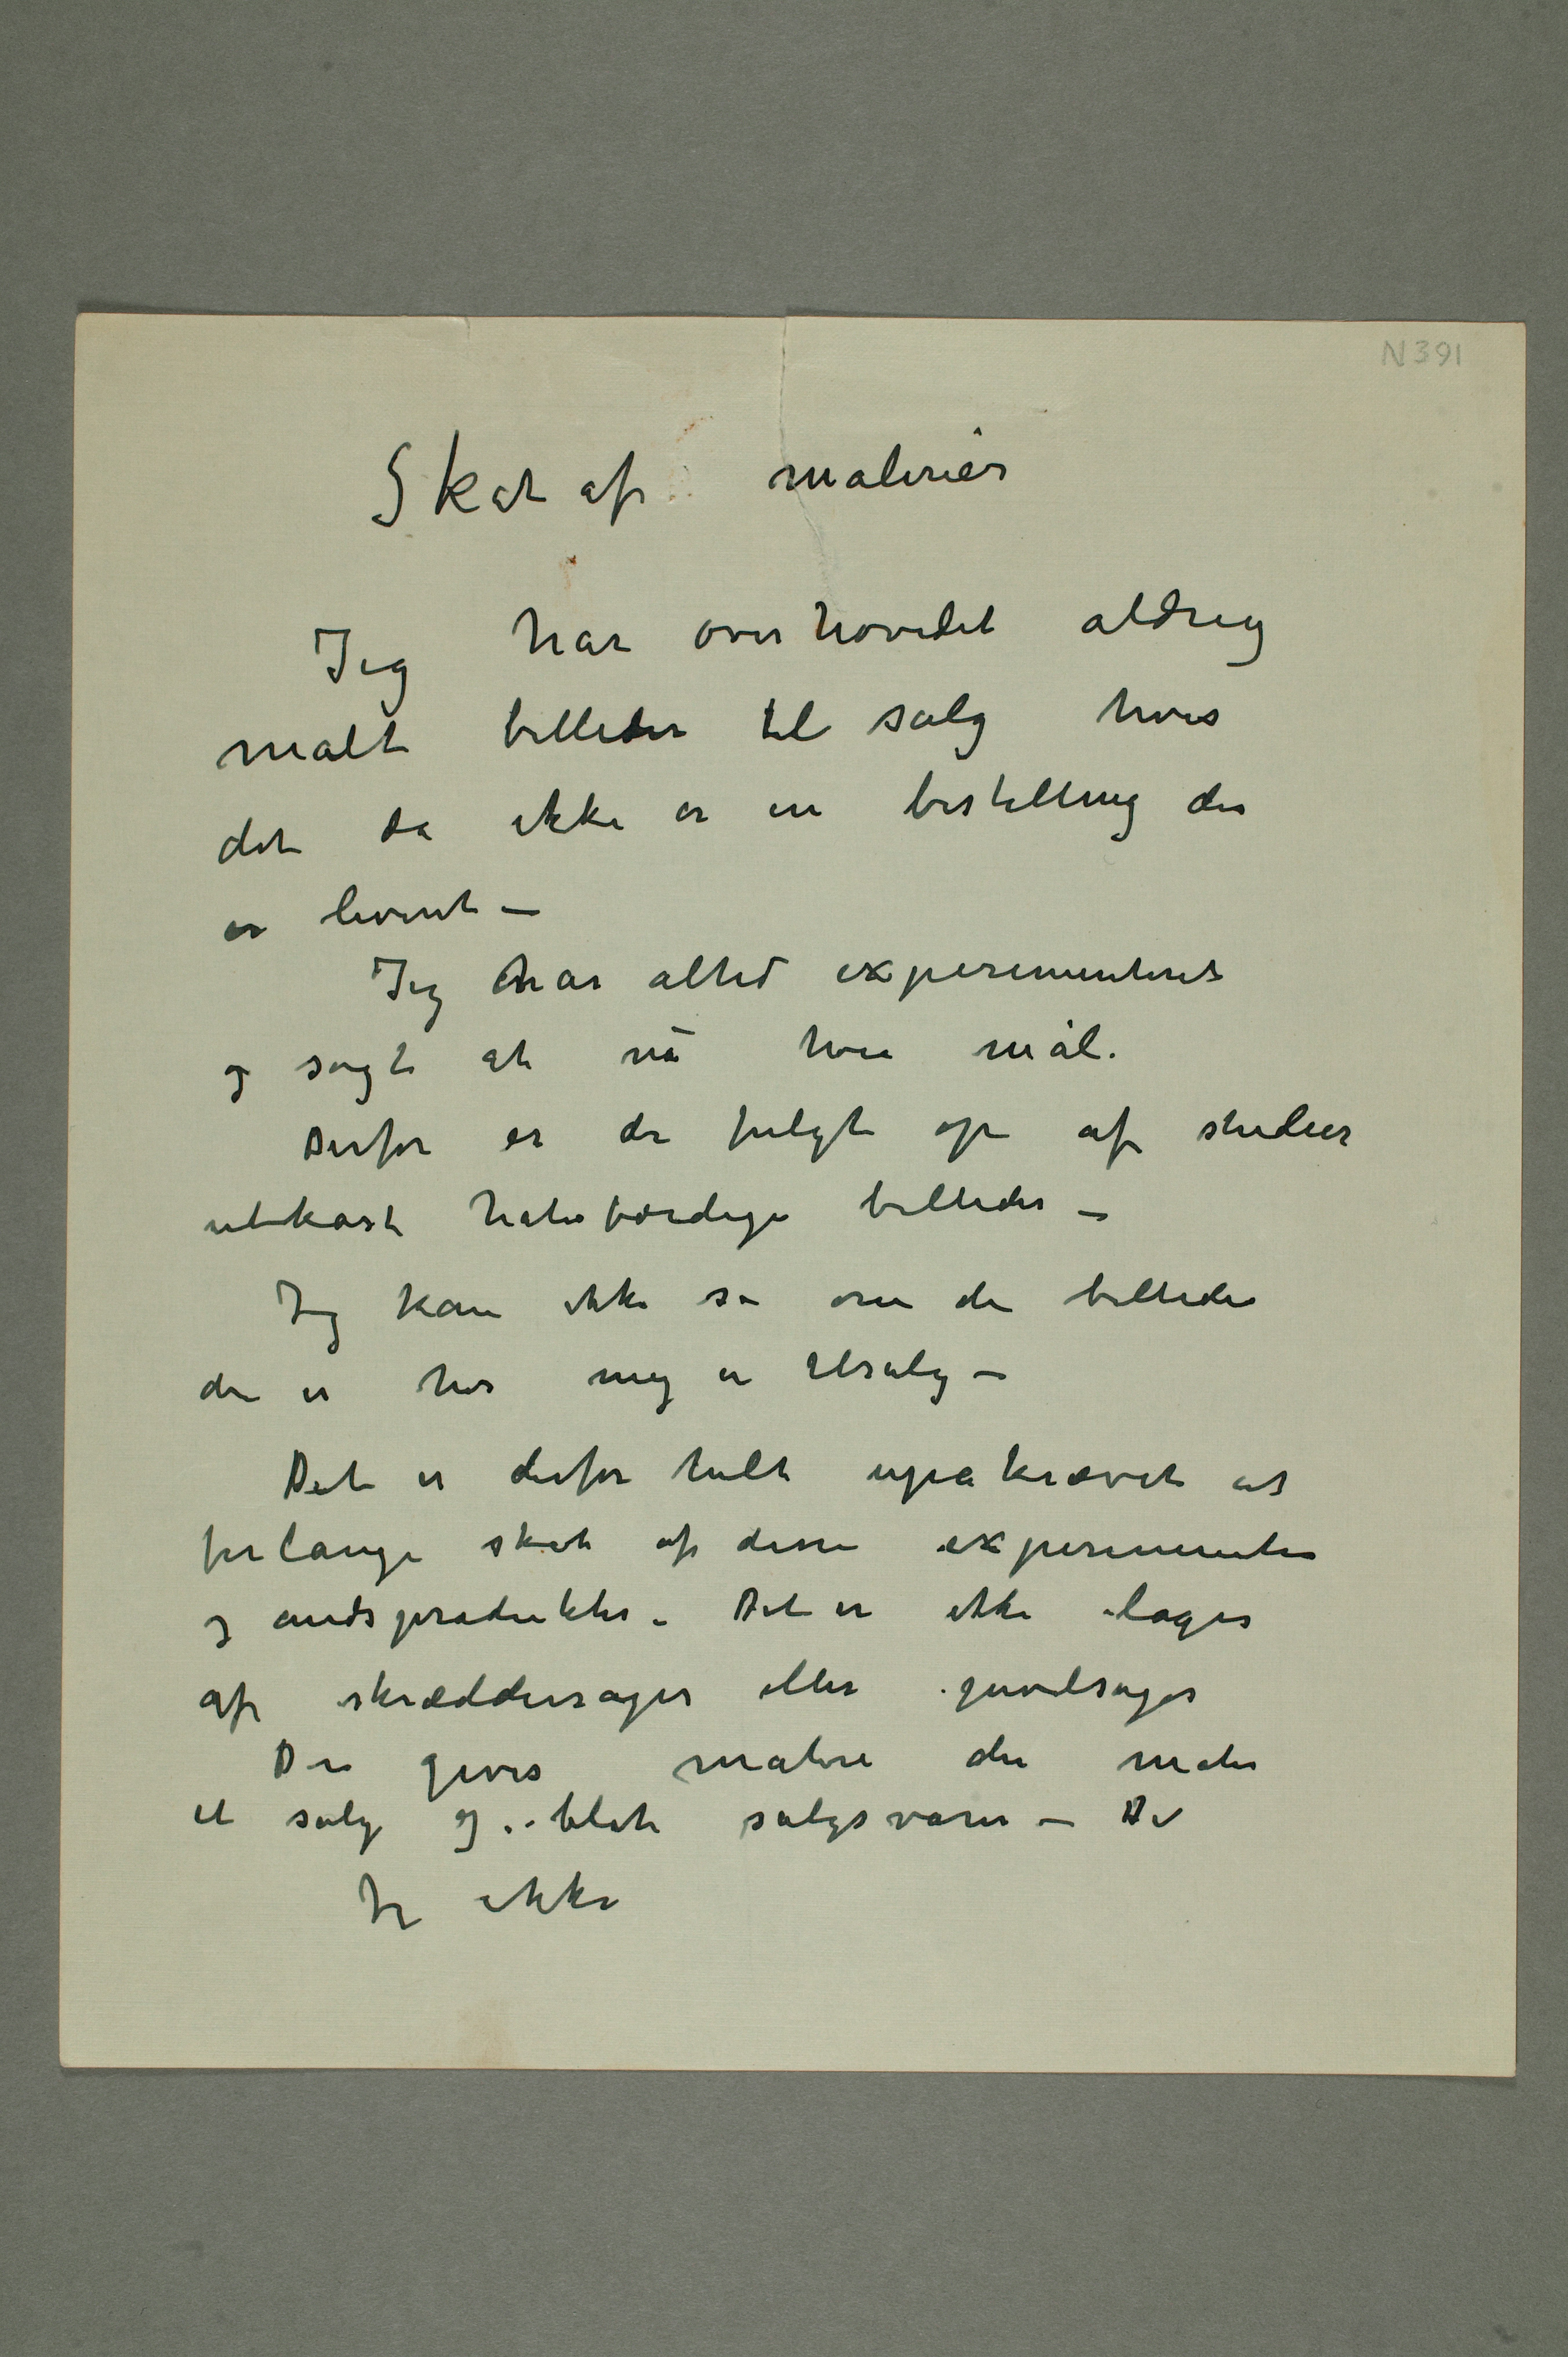 N 391
Skat af malerier
Jeg har overhovedet aldrig
malt billeder til salg hvis
det da ikke er en bestilling der
er levert –
Jeg har altid experimenteret
og søgt at nå høie mål.
Derfor er der fulgt op af studier
utkast halvfærdige billeder –
Jeg kan ikke se om de billeder
der er hos mig er tilsalg –
Det er derfor helt upåkrævet at
forlange skat af disse experimenter
og åndsprodukter. Det er ikke lager
af skræddersager eller juvelsager
Der gives malere der maler
et salg og blot salgsvarer – Det
Jeg ikke